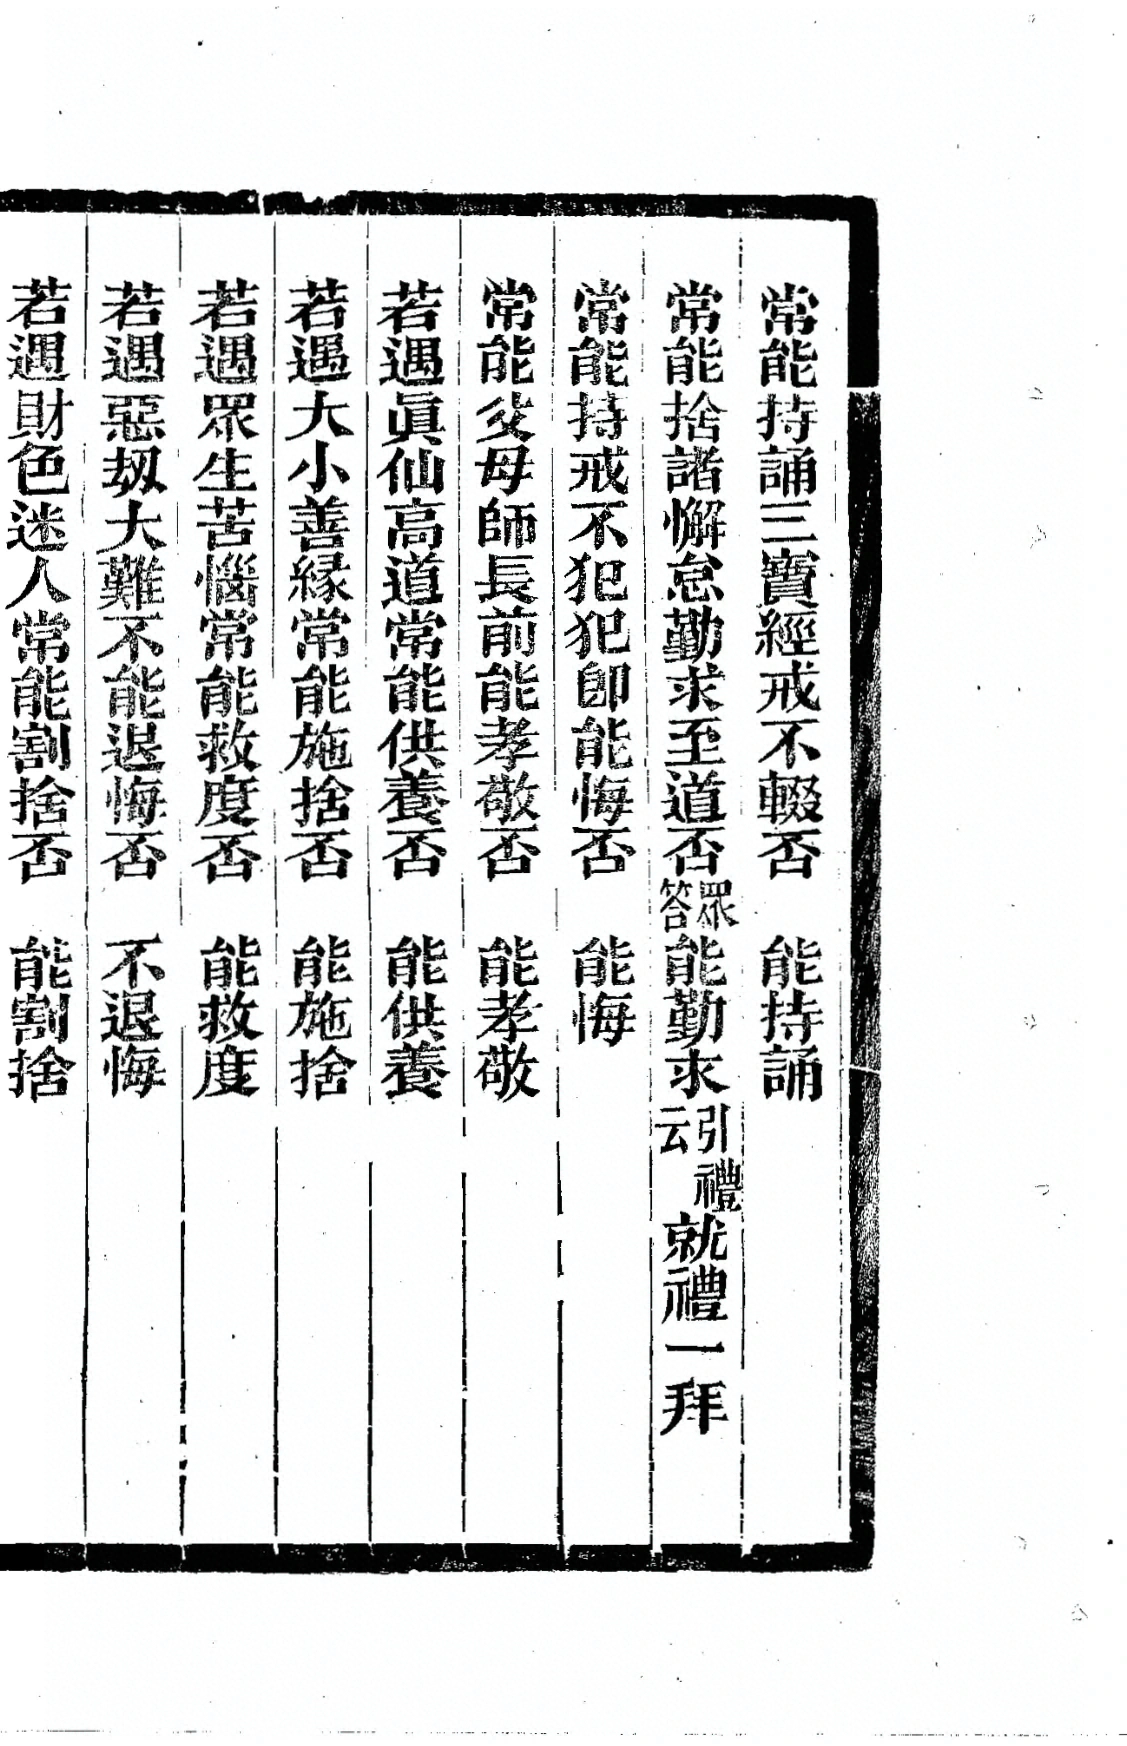 常能持誦三寶經戒不輟否　能持誦
常能捨諸懈怠勤求至道否眾答能勤求引禮云就禮一拜
常能持戒不犯犯卽能悔否　能悔
常能父母師長前能孝敬否　能孝敬
若遇眞仙高道常能供養否　能供養
若遇大小善緣常能施捨否　能施捨
若遇眾生苦惱常能救度否　能救度
若遇惡刼大難不能退悔否　不退悔
若遇財色迷人常能割捨否　能割捨